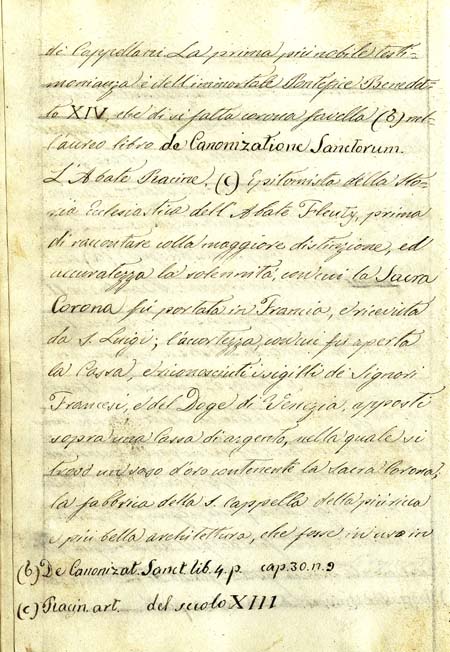 di Cappellani. La prima più nobile testi-
monianza è dell'immortale Pontefice Benedet-
to XIV, che di sì fatta corona favella (b) nel-
l'aureo libro de Canonizatione Sanctorum.
L'Abate Racine, (c) Epitomista della Sto-
ria Ecclesiastica dell'Abate Fleury, prima
di raccontare colla maggiore distinzione, ed
accuratezza la solennità, con cui la Sacra
Corona fù portata in Francia, e ricevuta
da S. Luigi; l'accortezza, con cui fù aperta
la Cassa, e riconosciuti i sigilli de' Signori
Francesi, e del Doge di Venezia, apposti
sopra una Cassa di argento, nella quale si
trovò un vaso d'oro contenente la sacra Corona;
la fabbrica della S. Cappella della più ricca
e più bella architettura, che fosse in uso in
(b) De Canonizat. Sanct. lib. 4. p. cap. 30. n. 9
(c) Racin. art. del secolo XIII